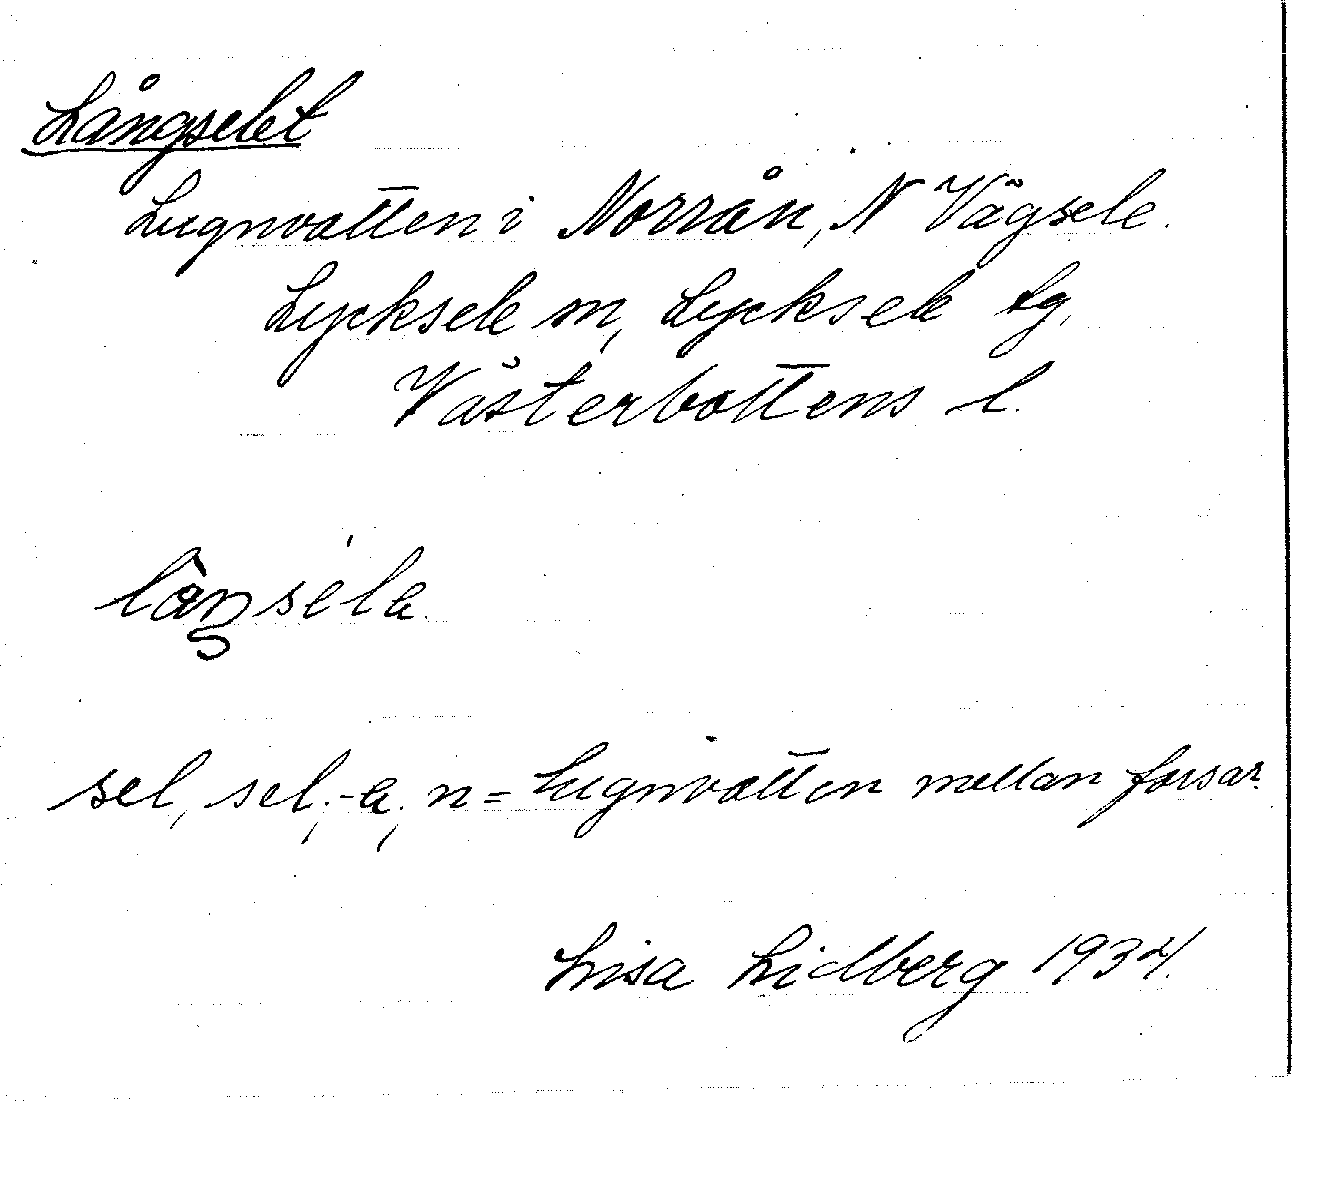 Långselet
Lugnvatten i Norrån, N Vägsele.
Lycksele m, Lycksele tg,
Västerbottens l.
låŋsela.
sel, sel; -a; n = Lugnvatten mellan forsar.
Lisa Lidberg 1934.